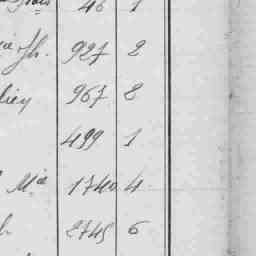 46 1
Jh. 927 2
967 8
499 1
Mie 1740 4
2745 6